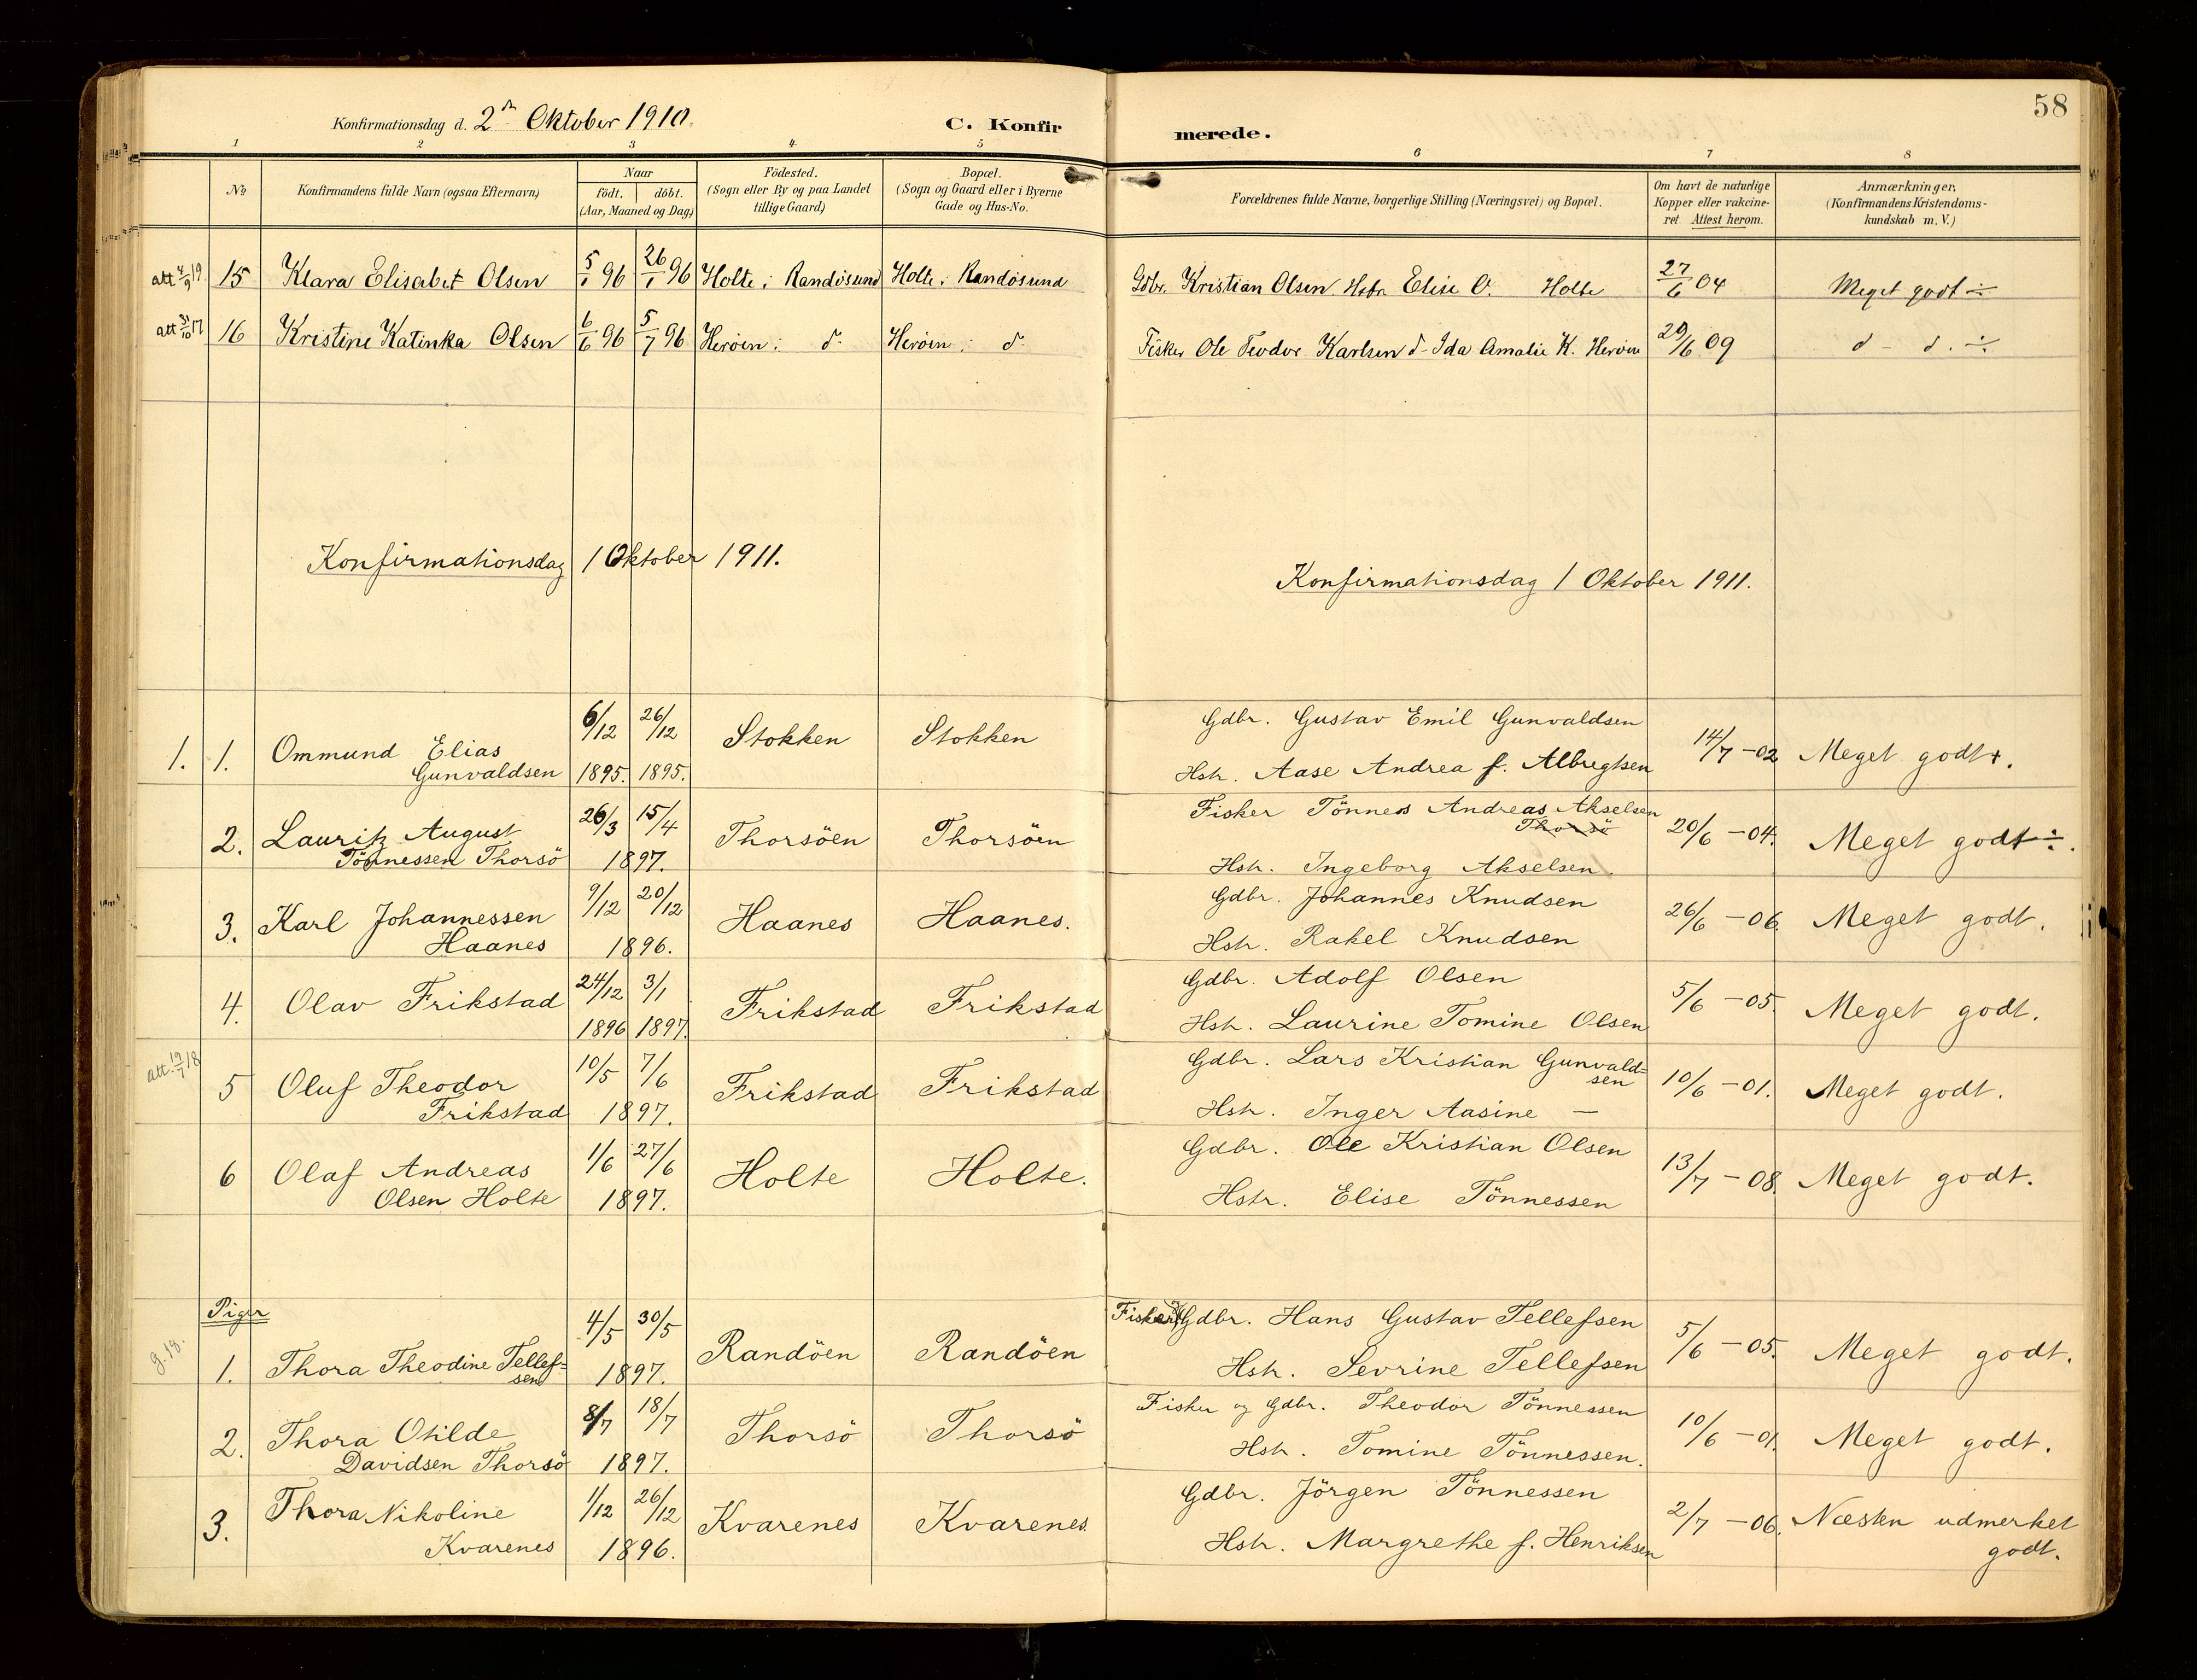 58
Konfirmationsdag d. 2den Oktober 1910.
C. Konfirmerede.
1 2 3 4 5 6 7 8
No
Konfirmandens fulde Navn (ogsaa Efternavn)
Naar
födt. döbt.
(Aar, Maaned og Dag)
Födested.
(Sogn eller By og paa Landet
tillige Gaard)
Bopæl.
(Sogn og Gaard eller i Byerne
Gade og Hus-No.
Forældrenes fulde Navne, borgerlige Stilling (Næringsvei) og Bopæl.
Om havt de naturlige
Kopper eller vakcine-
ret. Attest herom.
Anmærkninger.
(Konfirmandens Kristendoms-
kundskab m. V.)
att 4/9 19 15 Klara Elisabet Olsen 5/1 96 26/1 96 Holte i Randösund Holte i Randösund Gdbr. Kristian Olsen. Hstr. Elise O. Holte 27/6 04 Meget godt ÷
att 31/10 17 16 Kristine Katinka Olsen 6/6 96 5/7 96 Heröen i do Heröen i do Fisker Ole Teodor Karlsen d- Ida Amalie K. Heröen 29/6 09 d - d. ÷
Konfirmationsdag 1 Oktober 1911. Konfirmationsdag 1 Oktober 1911.
1. 1. Ommund Elias 6/12 26/12 Stokken Stokken Gdbr. Gustav Emil Gunvaldsen 14/7 -02 Meget godt +.
Gunvaldsen 1895. 1895. Hstr. Aase Andrea f. Albregtsen
2. Lauritz August 26/3 15/4 Thorsöen Thorsöen Fisker Tönnes Andreas Akselsen 20/6 -04. Meget godt ÷.
Thorsö
Tönnessen Thorsö 1897. Hstr. Ingeborg Akselsen.
3. Karl Johannessen 9/12 20/12 Haanes Haanes. Gdbr. Johannes Knudsen 26/6 -06. Meget godt.
Haanes 1896. Hstr. Rakel Knudsen
4. Olav Frikstad 24/12 3/1 Frikstad Frikstad Gdbr. Adolf Olsen 5/6 -05. Meget godt.
1896 1897. Hstr. Laurine Tomine Olsen
att. 19/7 18 5 Oluf Theodor 10/5 7/6 Frikstad Frikstad Gdbr. Lars Kristian Gunvald= 10/6 -01. Meget godt.
sen
Frikstad 1897. Hstr. Inger Aasine —
6 Olaf Andreas 1/6 27/6 Holte Holte. Gdbr. Ole Kristian Olsen 13/7 -08. Meget godt.
Olsen Holte 1897. Hstr. Elise Tönnessen
Piger
g. 18. 1. Thora Theodine Tellef= 4/5 30/5 Randöen Randöen Fisker og Gdbr. Hans Gustav Tellefsen 5/6 -05. Meget godt.
sen 1897. Hstr. Sevrine Tellefsen
2. Thora Otilde 8/7 18/7 Thorsö Thorsö Fisker og Gdbr. Theodor Tönnessen 10/6 -01. Meget godt.
Davidsen Thorsö 1897. Hstr. Tomine Tönnessen.
3. Thora Nikoline 1/12 26/12 Kvarenes Kvarenes. Gdbr. Jörgen Tönnessen 2/7 -06. Næsten udmerket
Kvarenes 1896. Hstr. Margrethe f. Henriksen godt.